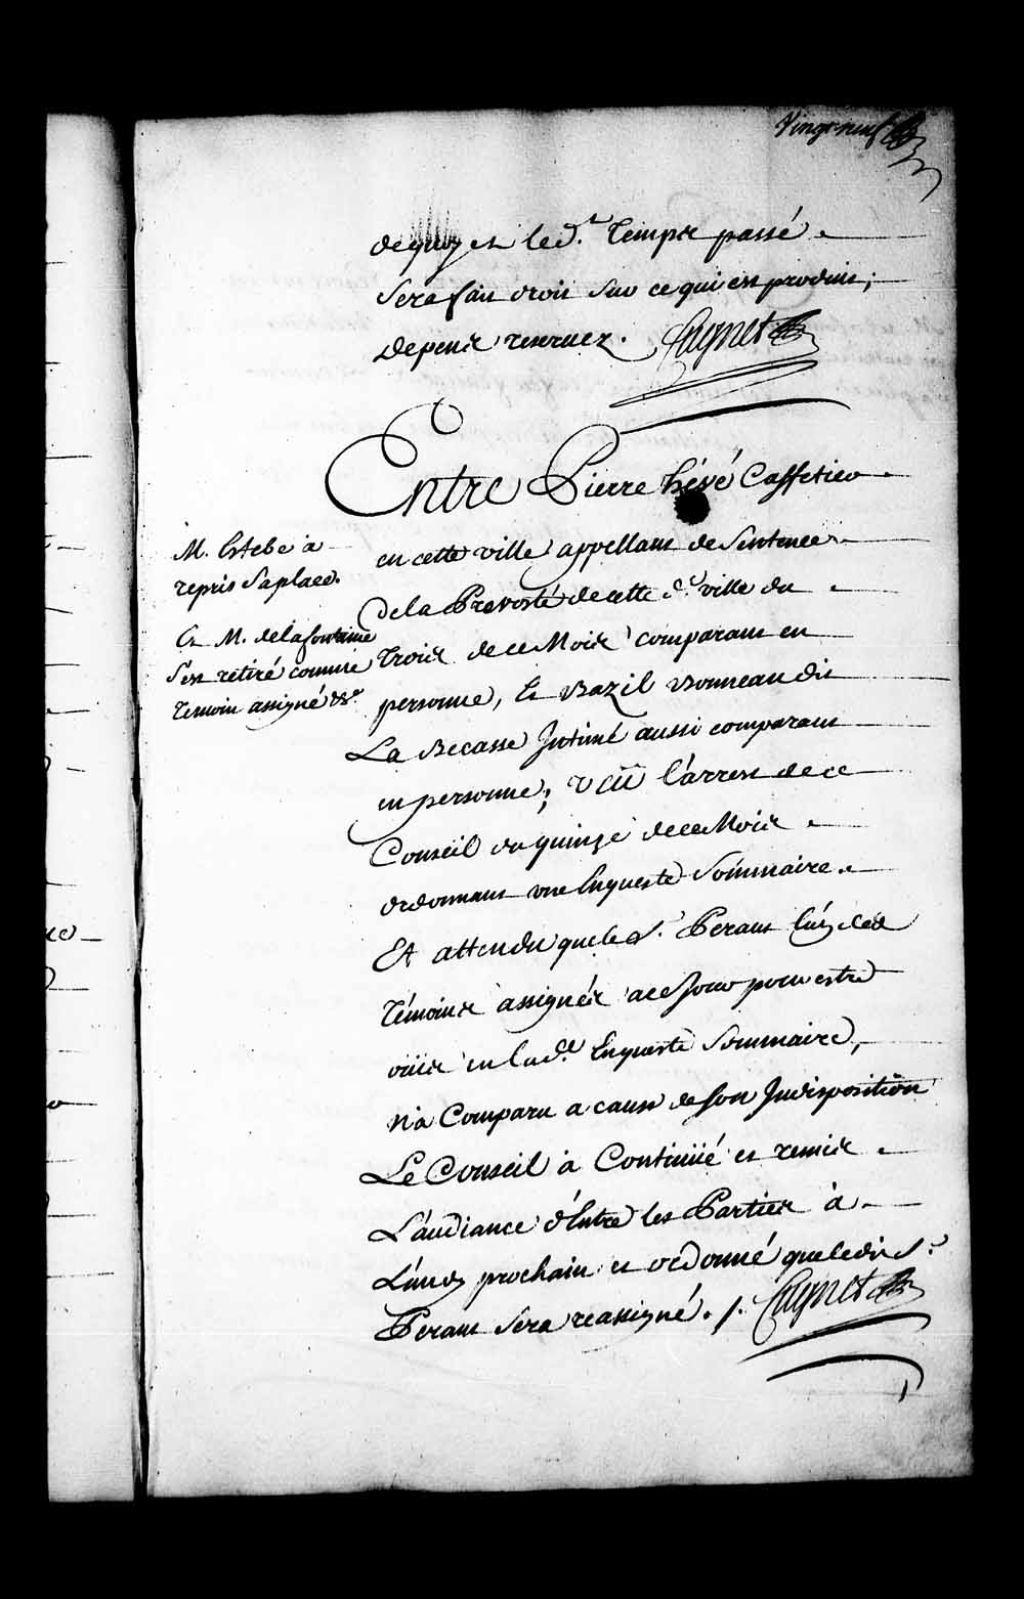 Vingt-neuf
de quoy et led.t Temps passé
Sera fait droit Sur ce qui est produit;
depens reservez. Cugnet
Entre Pierre hévé Caffetier
M. Estebe a
repris Sa place.
Et M. de la fontaine
S'est retiré comme
Temoin assigné &c.
en cette ville appellant de Sentence
de la Prevosté de cette d.e ville du
Trois de ce Mois comparant en
personne, Et Bazil Bonneau dit
La Becasse Intimé aussi comparant
en personne; Vëu l'arrest de ce
Conseil du quinze de ce Mois
ordonnant une Enqueste Sommaire.
Et attendu que le S.r Perant l'un des
Témoins assignés a ce Jour pour estre
oüis en lad.e Enqueste Sommaire,
n'a Comparu a cause de son Indisposition
Le Conseil a Continüé et remis
L'audiance d'Entre les Parties à
Lundy prochain et ordonné que ledit S.r
Perant Sera reassigné. /. Cugnet